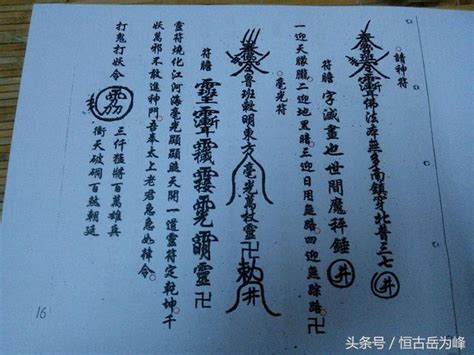 請神符
佛法本無多南鎮寧北普三七井
符膽 字滅盡也世間魔秤錘 井
一迎天朦朧二迎地黑暗三迎日月無路四迎無踪路卍
毫光符
魯班敕明東方毫光萬枝靈卍敕井
符膽
靈符燒化江河海毫光顯顯照天開一道靈符定乾坤千
妖萬邪不敢進神門吾奉太上老君急急如律令
打鬼打妖令
三仟猛將百萬雄兵
衝天破洞百煞朝廷
16
头条号 / 恒古岳为峰